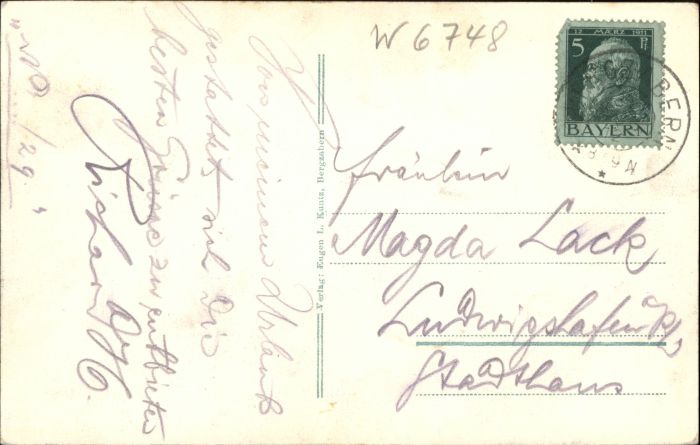 W 6748
12 MÄRZ 1911
5 Pf
BAYERN
BERG BERN
Fräulein
Magda Lack
Ludwigshafen a/Rh.
Stadthaus
Verlag: Eugen L. Kuntz, Bergzabern
Von meinem Urlaub
gestattet sich die
besten Grüsse zu entbieten
Richard
/29.